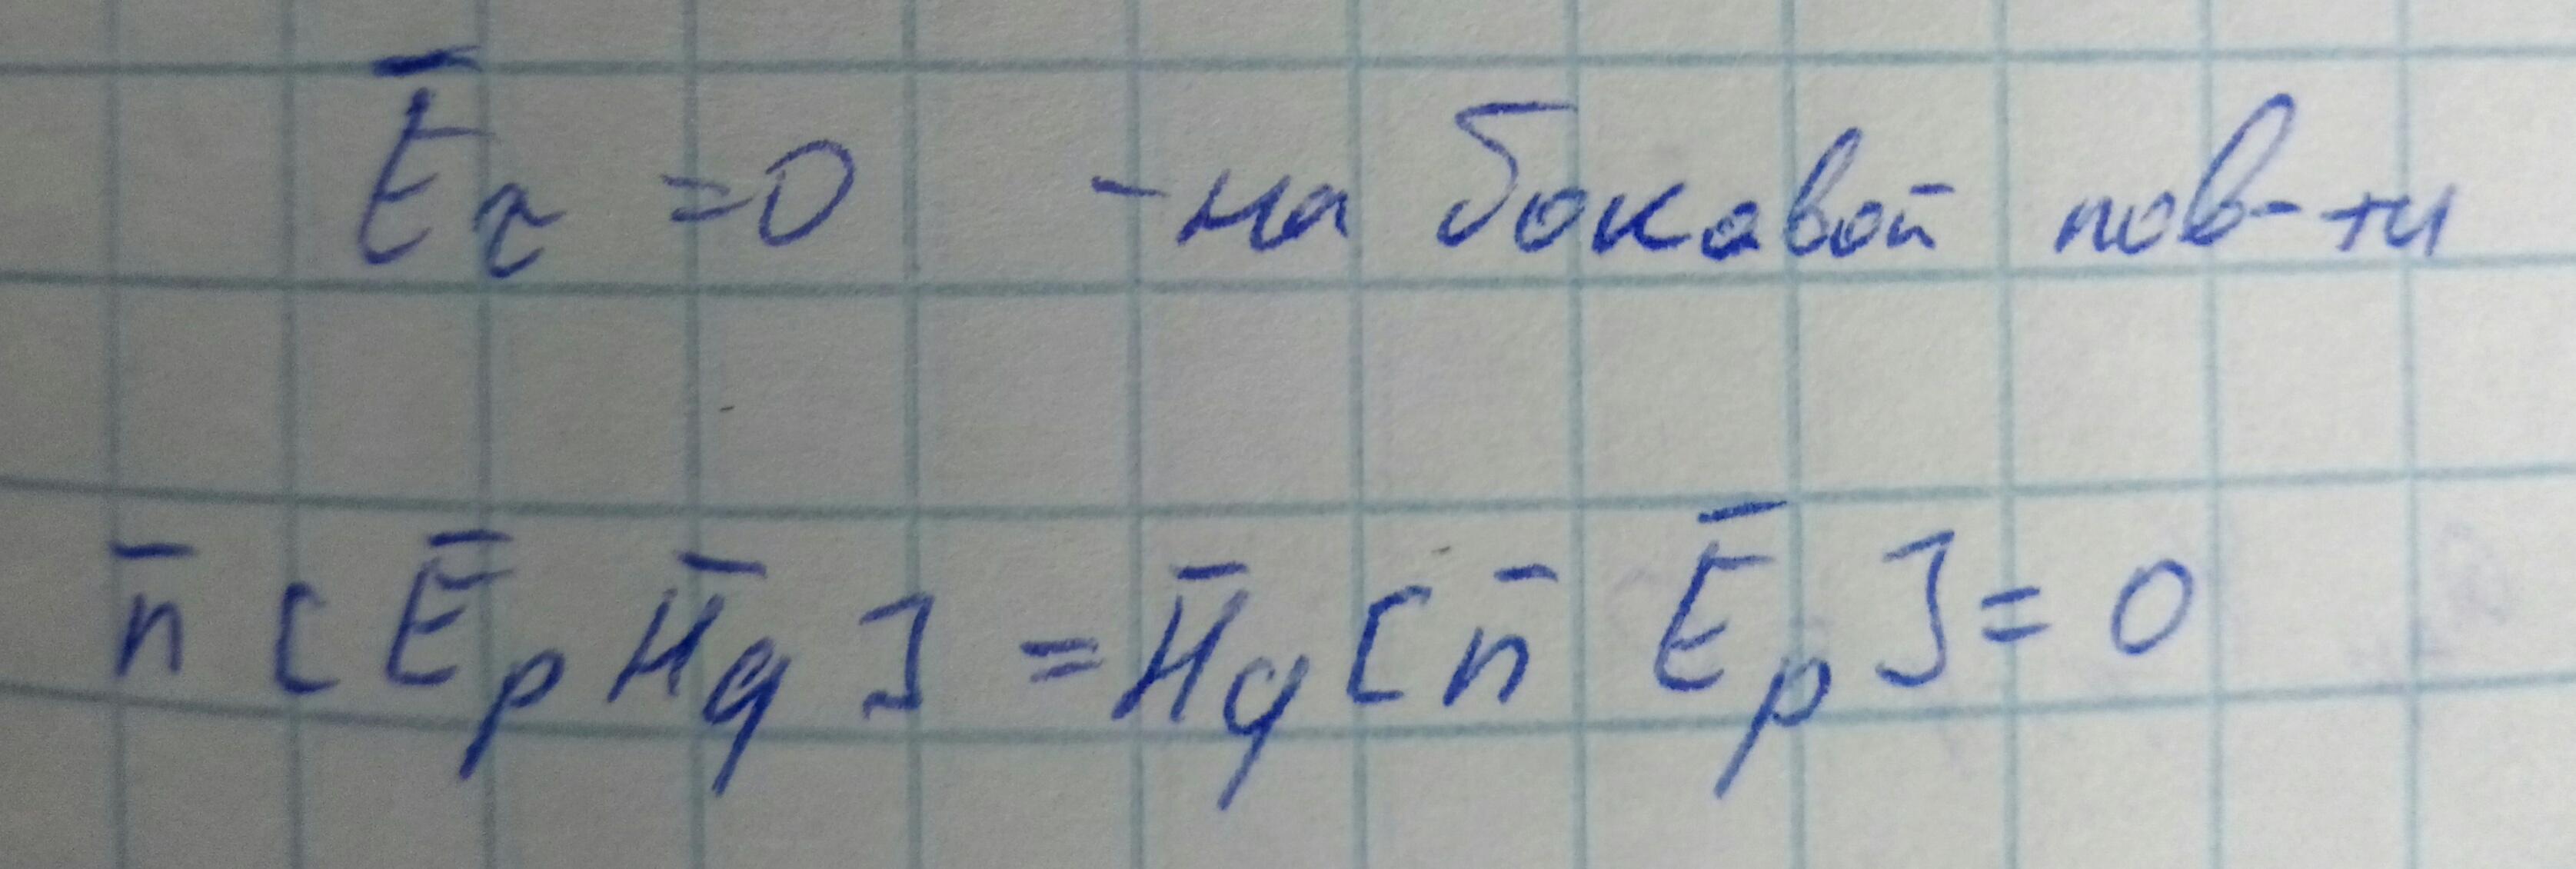 Ē_τ = 0 - на боковой пов-ти
n̄ [Ē_p H̄_q] = H̄_q [n̄ Ē_p] = 0